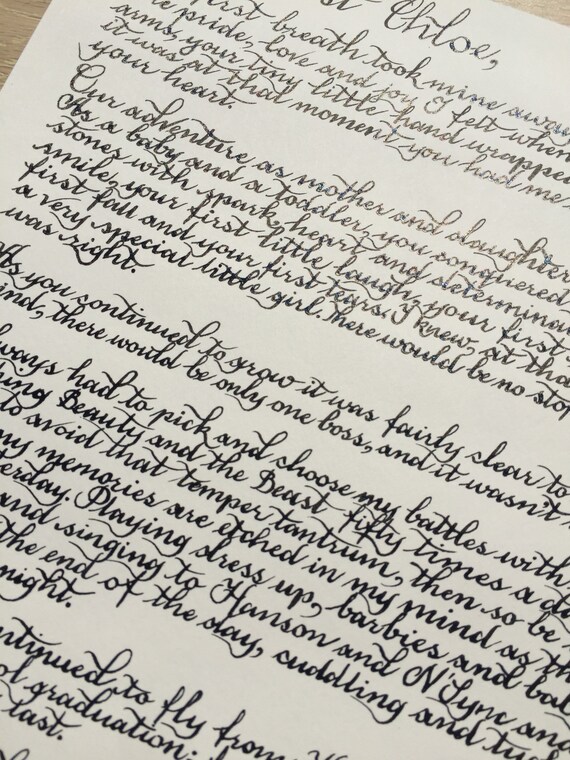 Chloe,
first breath took mine away
pride, love and joy I felt when
arms, your tiny little hand wrapped
it was at that moment you had me
your heart.
Our adventure as mother and daughter
As a baby and a toddler, you conquered
stones with spark, heart and determina
smile, your first little laugh, your first
first fall and your first tears. I knew, at tha
a very special little girl. There would be no stop
was right.
As you continued to grow it was fairly clear to
ind, there would be only one boss, and it wasn't
ways had to pick and choose my battles with
hing Beauty and the Beast fifty times a da
to avoid that temper tantrum, then so be
my memories are etched in my mind as th
terday. Playing dress up, barbies and bal
and singing to Hanson and N'Sync and
the end of the day, cuddling and tuck
night.
ntinued to fly from
ol graduation;
last.